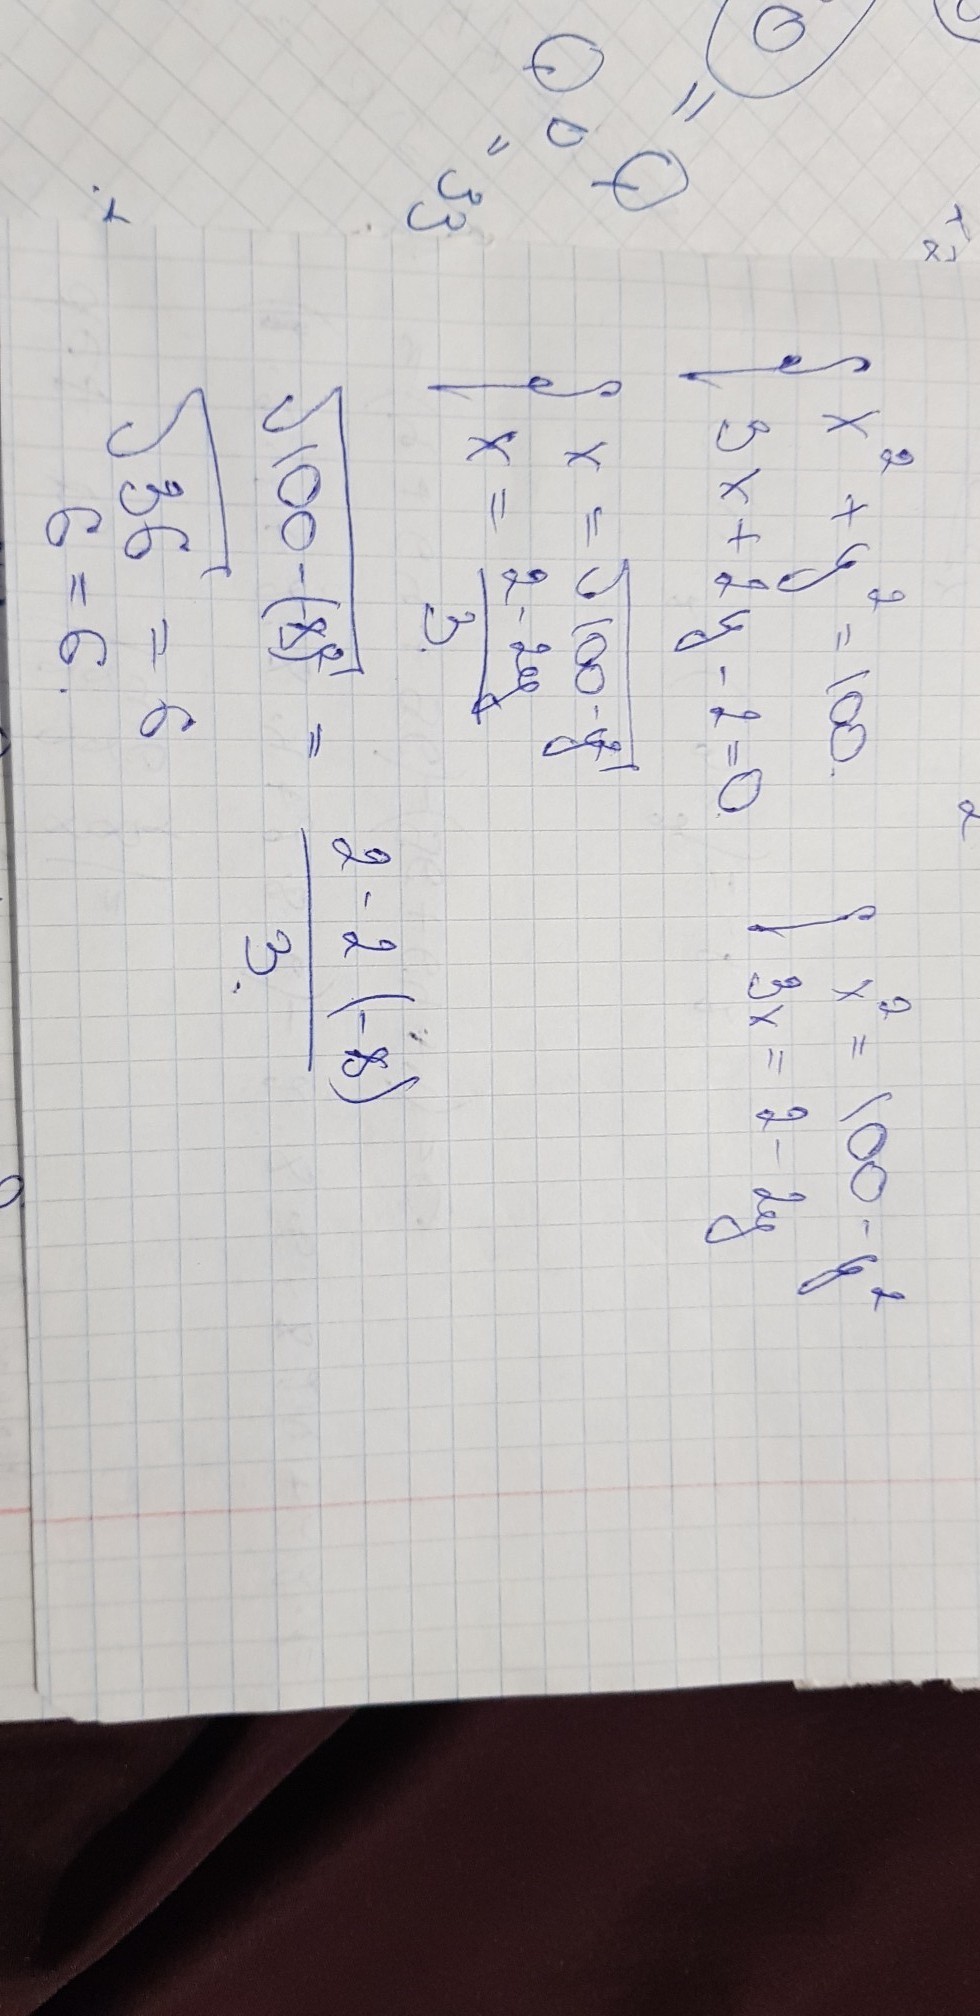 x² + y² = 100.
3x + 2y - 2 = 0
x² = 100 - y²
3x = 2 - 2y
x = √100 - y²
x = 2 - 2y
3.
√100 - (-8)² = 2 - 2(-8)
3.
√36 = 6
6 = 6.